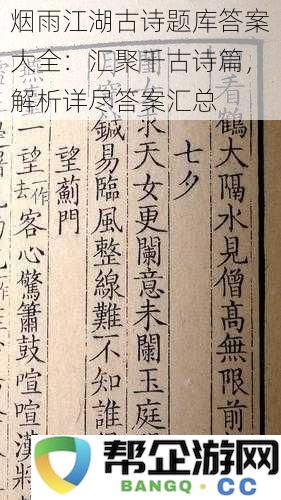 烟雨江湖古诗题库答案
大全：汇聚千古诗篇，
解析详尽答案汇总
看鶴大隔水見僧高無限前
七夕
求天女更闌意未闌玉庭
鍼易臨風整線難不知誰
望薊門
一望去作客心驚簫鼓喧喧漢將
帮企游网
BANGQ·CC